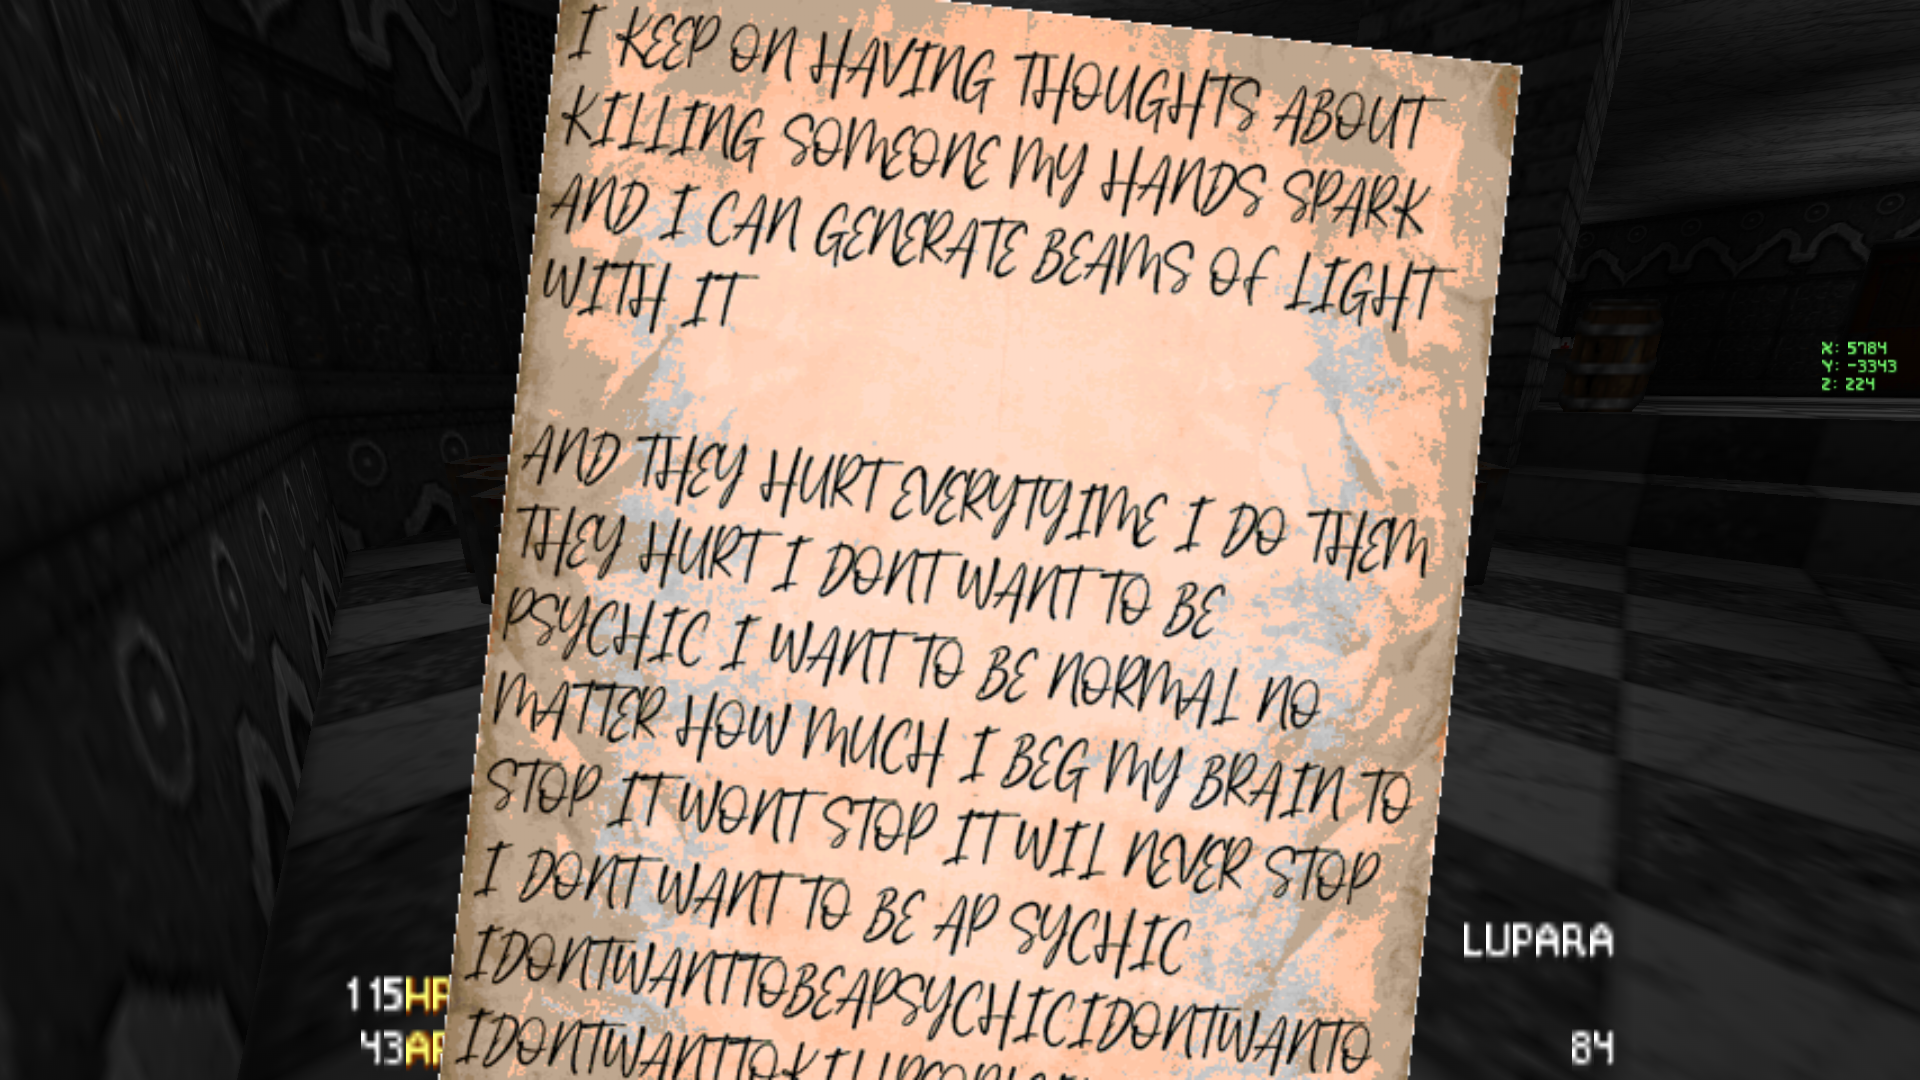 I KEEP ON HAVING THOUGHTS ABOUT
KILLING SOMEONE MY HANDS SPARK
AND I CAN GENERATE BEAMS OF LIGHT
WITH IT
AND THEY HURT EVERYTYIME I DO THEM
THEY HURT I DONT WANT TO BE
PSYCHIC I WANT TO BE NORMAL NO
MATTER HOW MUCH I BEG MY BRAIN TO
STOP IT WONT STOP IT WIL NEVER STOP
I DONT WANT TO BE AP SYCHIC
IDONTWANTTOBEAPSYCHICIDONTWANTO
X: 5784
Y: -3343
Z: 224
115HP
43AP
LUPARA
84